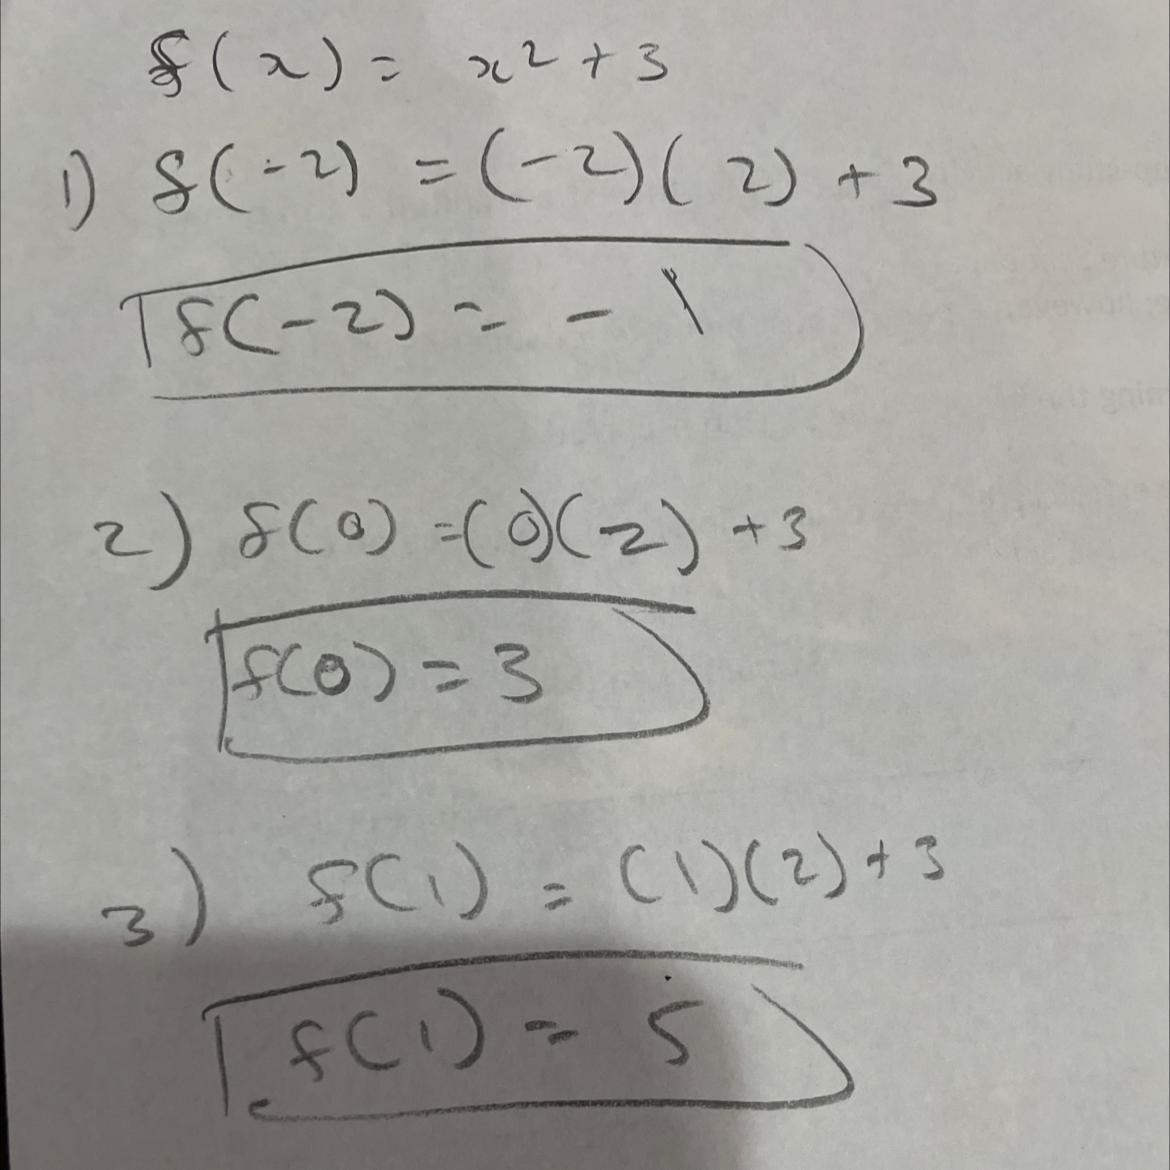 f(x) = x² + 3
1) f(-2) = (-2)(2) + 3
f(-2) = -1
2) f(0) = (0)(2) + 3
f(0) = 3
3) f(1) = (1)(2) + 3
f(1) = 5